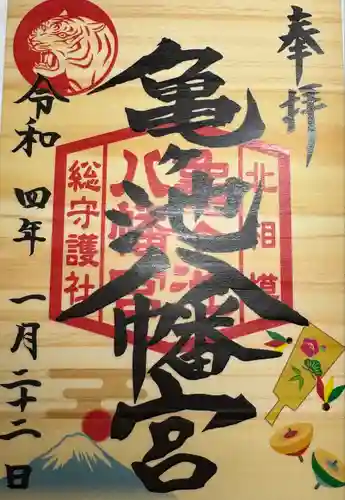 奉拝
亀ヶ池八幡宮
北相模
亀ヶ池
八幡宮
総守護社
令和四年一月二十二日